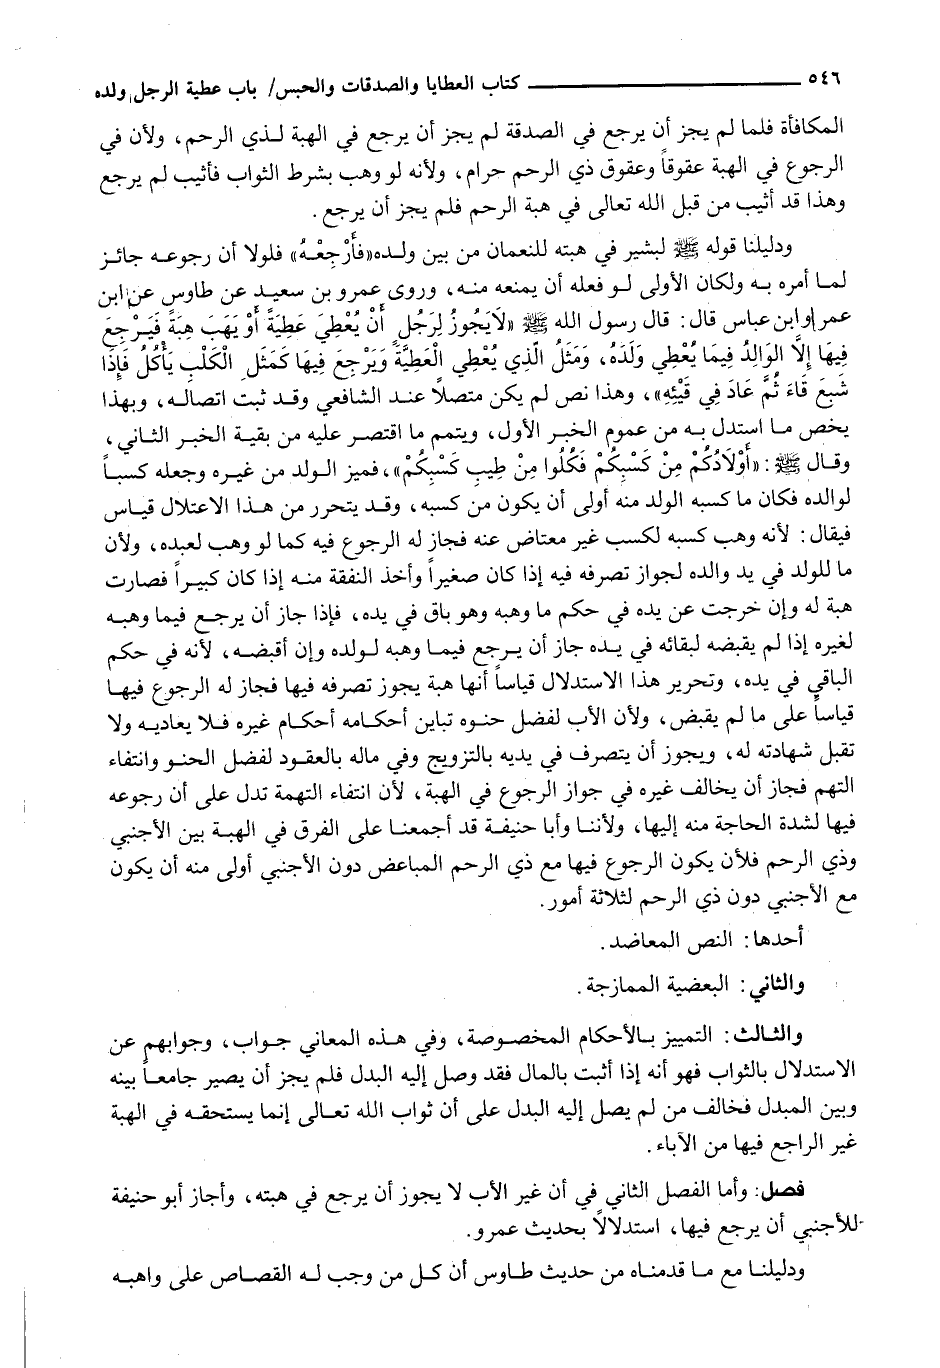 ٥٤٦ ــــــــــ كتاب العطايا والصدقات والحبس/ باب عطية الرجل ولده
المكافأة فلما لم يجز أن يرجع في الصدقة لم يجز أن يرجع في الهبة لـذي الرحم، ولأن في
الرجوع في الهبة عقوقاً وعقوق ذي الرحم حرام، ولأنه لو وهب بشرط الثواب فأثيب لم يرجع
وهذا قد أثيب من قبل الله تعالى في هبة الرحم فلم يجز أن يرجع.
ودليلنا قوله ﷺ لبشير في هبته للنعمان من بين ولـده«فَأَرْجِعْـهُ» فلولا أن رجوعـه جائـز
لمـا أمره بـه ولكان الأولى لـو فعله أن يمنعه منـه، وروى عمرو بن سعيـد عن طاوس عن ابن
عمر وابن عباس قال: قال رسول الله ﷺ «لَا يَجُوزُ لِرَجُلٍ أَنْ يُعْطِيَ عَطِيَّةً أَوْ يَهَبَ هِبَةً فَيَـرْجِـعَ
فِيهَا إِلَّا الوَالِدُ فِيمَا يُعْطِي وَلَدَهُ، وَمَثَلُ الَّذِي يُعْطِي الْعَطِيَّةَ وَيَرْجِعُ فِيهَا كَمَثَلِ الْكَلْبِ يَأْكُلُ فَإِذَا
شَبِعَ قَاءَ ثُمَّ عَادَ فِي قَيْئِهِ»، وهذا نص لم يكن متصلاً عنـد الشافعي وقـد ثبت اتصالـه، وبهذا
يخص مـا استدل بـه من عموم الخبـر الأول، ويتمم ما اقتصـر عليه من بقيـة الخبـر الثـاني،
وقـال ﷺ: «أَوْلَادُكُمْ مِنْ كَسْبِكُمْ فَكُلُوا مِنْ طِيبِ كَسْبِكُمْ»، فميز الـولد من غيـره وجعله كسبـاً
لوالده فكان ما كسبه الولد منه أولى أن يكون من كسبه، وقـد يتحرر من هـذا الاعتلال قيـاس
فيقال: لأنه وهب كسبه لكسب غير معتاض عنه فجاز له الرجوع فيه كما لو وهب لعبده، ولأن
ما للولد في يد والده لجواز تصرفه فيه إذا كان صغيراً وأخذ النفقة منـه إذا كان كبيـراً فصارت
هبة له وإن خرجت عن يده في حكم ما وهبه وهو باق في يده، فإذا جاز أن يرجـع فيما وهبـه
لغيره إذا لم يقبضه لبقائه في يـده جاز أن يـرجع فيمـا وهبه لـولده وإن أقبضـه، لأنه في حكم
الباقي في يده، وتحرير هذا الاستدلال قياساً أنها هبة يجوز تصرفه فيها فجاز له الرجوع فيهـا
قياساً على ما لم يقبض، ولأن الأب لفضل حنـوه تباين أحكـامه أحكـام غيره فـلا يعاديـه ولا
تقبل شهادته له، ويجوز أن يتصرف في يديه بالتزويج وفي ماله بالعقود لفضل الحنـو وانتفاء
التهم فجاز أن يخالف غيره في جواز الرجوع في الهبة، لأن انتفاء التهمة تدل على أن رجوعه
فيها لشدة الحاجة منه إليها، ولأننا وأبا حنيفـة قد أجمعنـا على الفرق في الهبـة بين الأجنبي
وذي الرحم فلأن يكون الرجوع فيها مع ذي الرحم المباعض دون الأجنبي أولى منه أن يكون
مع الأجنبي دون ذي الرحم لثلاثة أمور.
أحدها: النص المعاضد.
والثاني: البعضية الممازجة.
والثـالث: التمييز بـالأحكام المخصـوصة، وفي هـذه المعاني جـواب، وجوابهم عن
الاستدلال بالثواب فهو أنه إذا أثبت بالمال فقد وصل إليه البدل فلم يجز أن يصير جامعـاً بينه
وبين المبدل فخالف من لم يصل إليه البدل على أن ثواب الله تعـالى إنما يستحقـه في الهبة
غير الراجع فيها من الآباء.
فصل: وأما الفصل الثاني في أن غير الأب لا يجوز أن يرجع في هبته، وأجاز أبو حنيفة
للأجنبي أن يرجع فيها، استدلالاً بحديث عمرو.
ودليلنـا مع مـا قدمنـاه من حديث طـاوس أن كـل من وجب لـه القصـاص على واهبـه